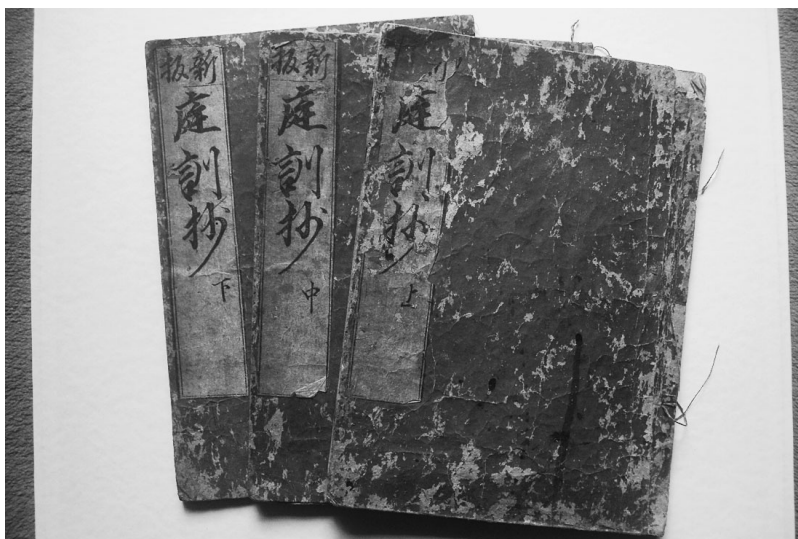 新板
庭訓抄
上
新板
庭訓抄
中
新板
庭訓抄
下